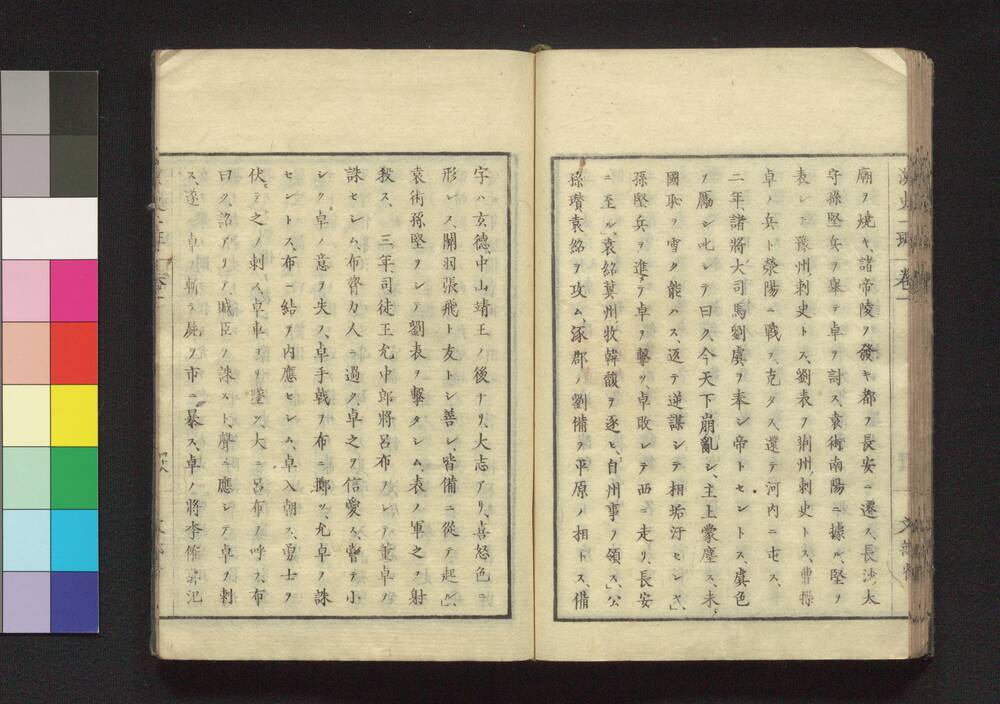 漢史一班 卷一
廟ヲ燒キ、諸帝陵ヲ發キ都ヲ長安ニ遷ス、長沙ノ太
守孫堅兵ヲ舉ケ卓ヲ討ス、袁術南陽ニ據ル、堅ヲ
表シテ豫州ノ刺史トス、劉表ヲ荆州ノ刺史トス、曹操
卓ノ兵ト滎陽ニ戰フ、克タス、還テ河內ニ屯ス、
二年、諸將大司馬劉虞ヲ奉シ帝トセントス、虞色
ヲ厲シ叱シテ曰ク、今天下崩亂シ、主上蒙塵ス、未タ
國恥ヲ雪ク能ハス、返テ逆謀シテ相垢汙センヤ、」
孫堅兵ヲ進テ卓ヲ擊ツ、卓敗レテ西ニ走リ、長安
ニ至ル、」袁紹冀州牧韓馥ヲ逐ヒ、自州事ヲ領ス、」公
孫瓚袁紹ヲ攻ム、涿郡ノ劉備ヲ平原ノ相トス、備
字ハ玄德中山靖王ノ後ナリ、大志アリ、喜怒色ニ
形レス、關羽張飛ト友トシ善シ、皆備ニ從テ起ル、」
袁術孫堅ヲシテ劉表ヲ擊タシム、表ノ軍之ヲ射
殺ス、 三年、司徒王允中郎將呂布ヲシテ董卓ヲ
誅セシム、布膂力人ニ過ク、卓之ヲ信愛ス、嘗テ小
シク卓ノ意ヲ失フ、卓手戟ヲ布ニ擲ツ、允卓ヲ誅
セントス、布ニ結ヲ內應セシム、卓入朝ス、勇士ヲ
伏テ之ヲ刺ス、卓車ヨリ墮ツ、大ニ呂布ヲ呼フ、布
曰ク、詔アリ、賊臣ヲ誅スト、聲ニ應シテ卓ヲ刺
ス、遂ニ卓ヲ斬ラ屍ヲ市ニ暴ス、卓ノ將李傕郭汜